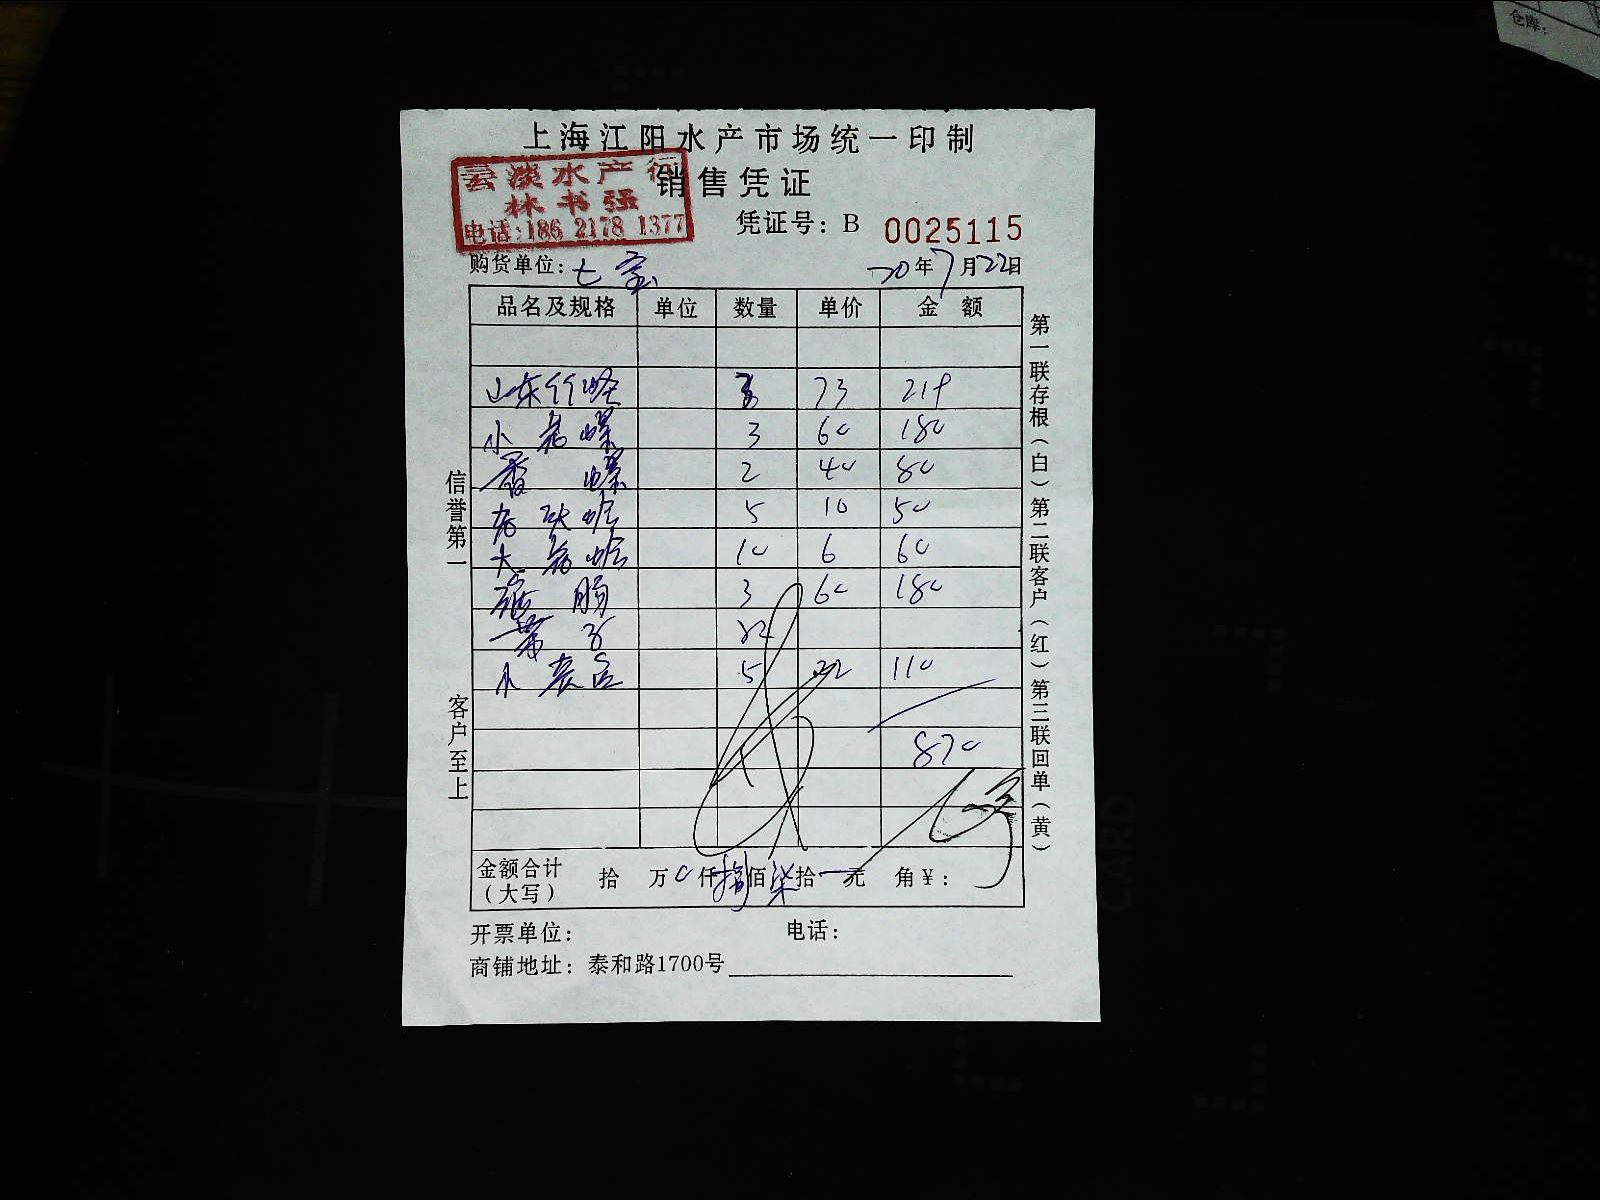 仓库:
上海江阳水产市场统一印制
销售凭证
云淡水产行
林书强
电话:186 2178 1377
凭证号: B 0025115
购货单位: 七宝
20年7月22日
品名及规格 单位 数量 单价 金额
山东竹蛏 3 73 219
小 螺 3 60 180
香 螺 2 40 80
5 10 50
大 蛤 10 6 60
肠 3 60 180
带子
小 5 22 110
870
金额合计(大写) 拾 万 0 仟 捌 佰 柒 拾 一 元 角 ¥:
开票单位: 电话:
商铺地址: 泰和路1700号
信誉第一
客户至上
第一联存根(白) 第二联客户(红) 第三联回单(黄)
CARD